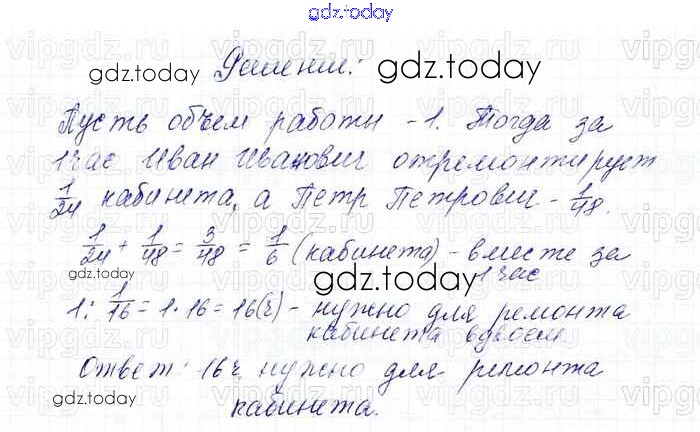 gdz.today
Решение:
gdz.today gdz.today
Пусть объем работы - 1. Тогда за
1 час Иван Иванович отремонтирует
1/24 кабинета, а Петр Петрович - 1/48.
1/24 + 1/48 = 3/48 = 1/6 (кабинета) - вместе за
1 час
gdz.today
1 : 1/16 = 1 · 16 = 16(ч) - нужно для ремонта
кабинета вдвоем
Ответ: 16ч нужно для ремонта
gdz.today
кабинета.
vipgdz.ru